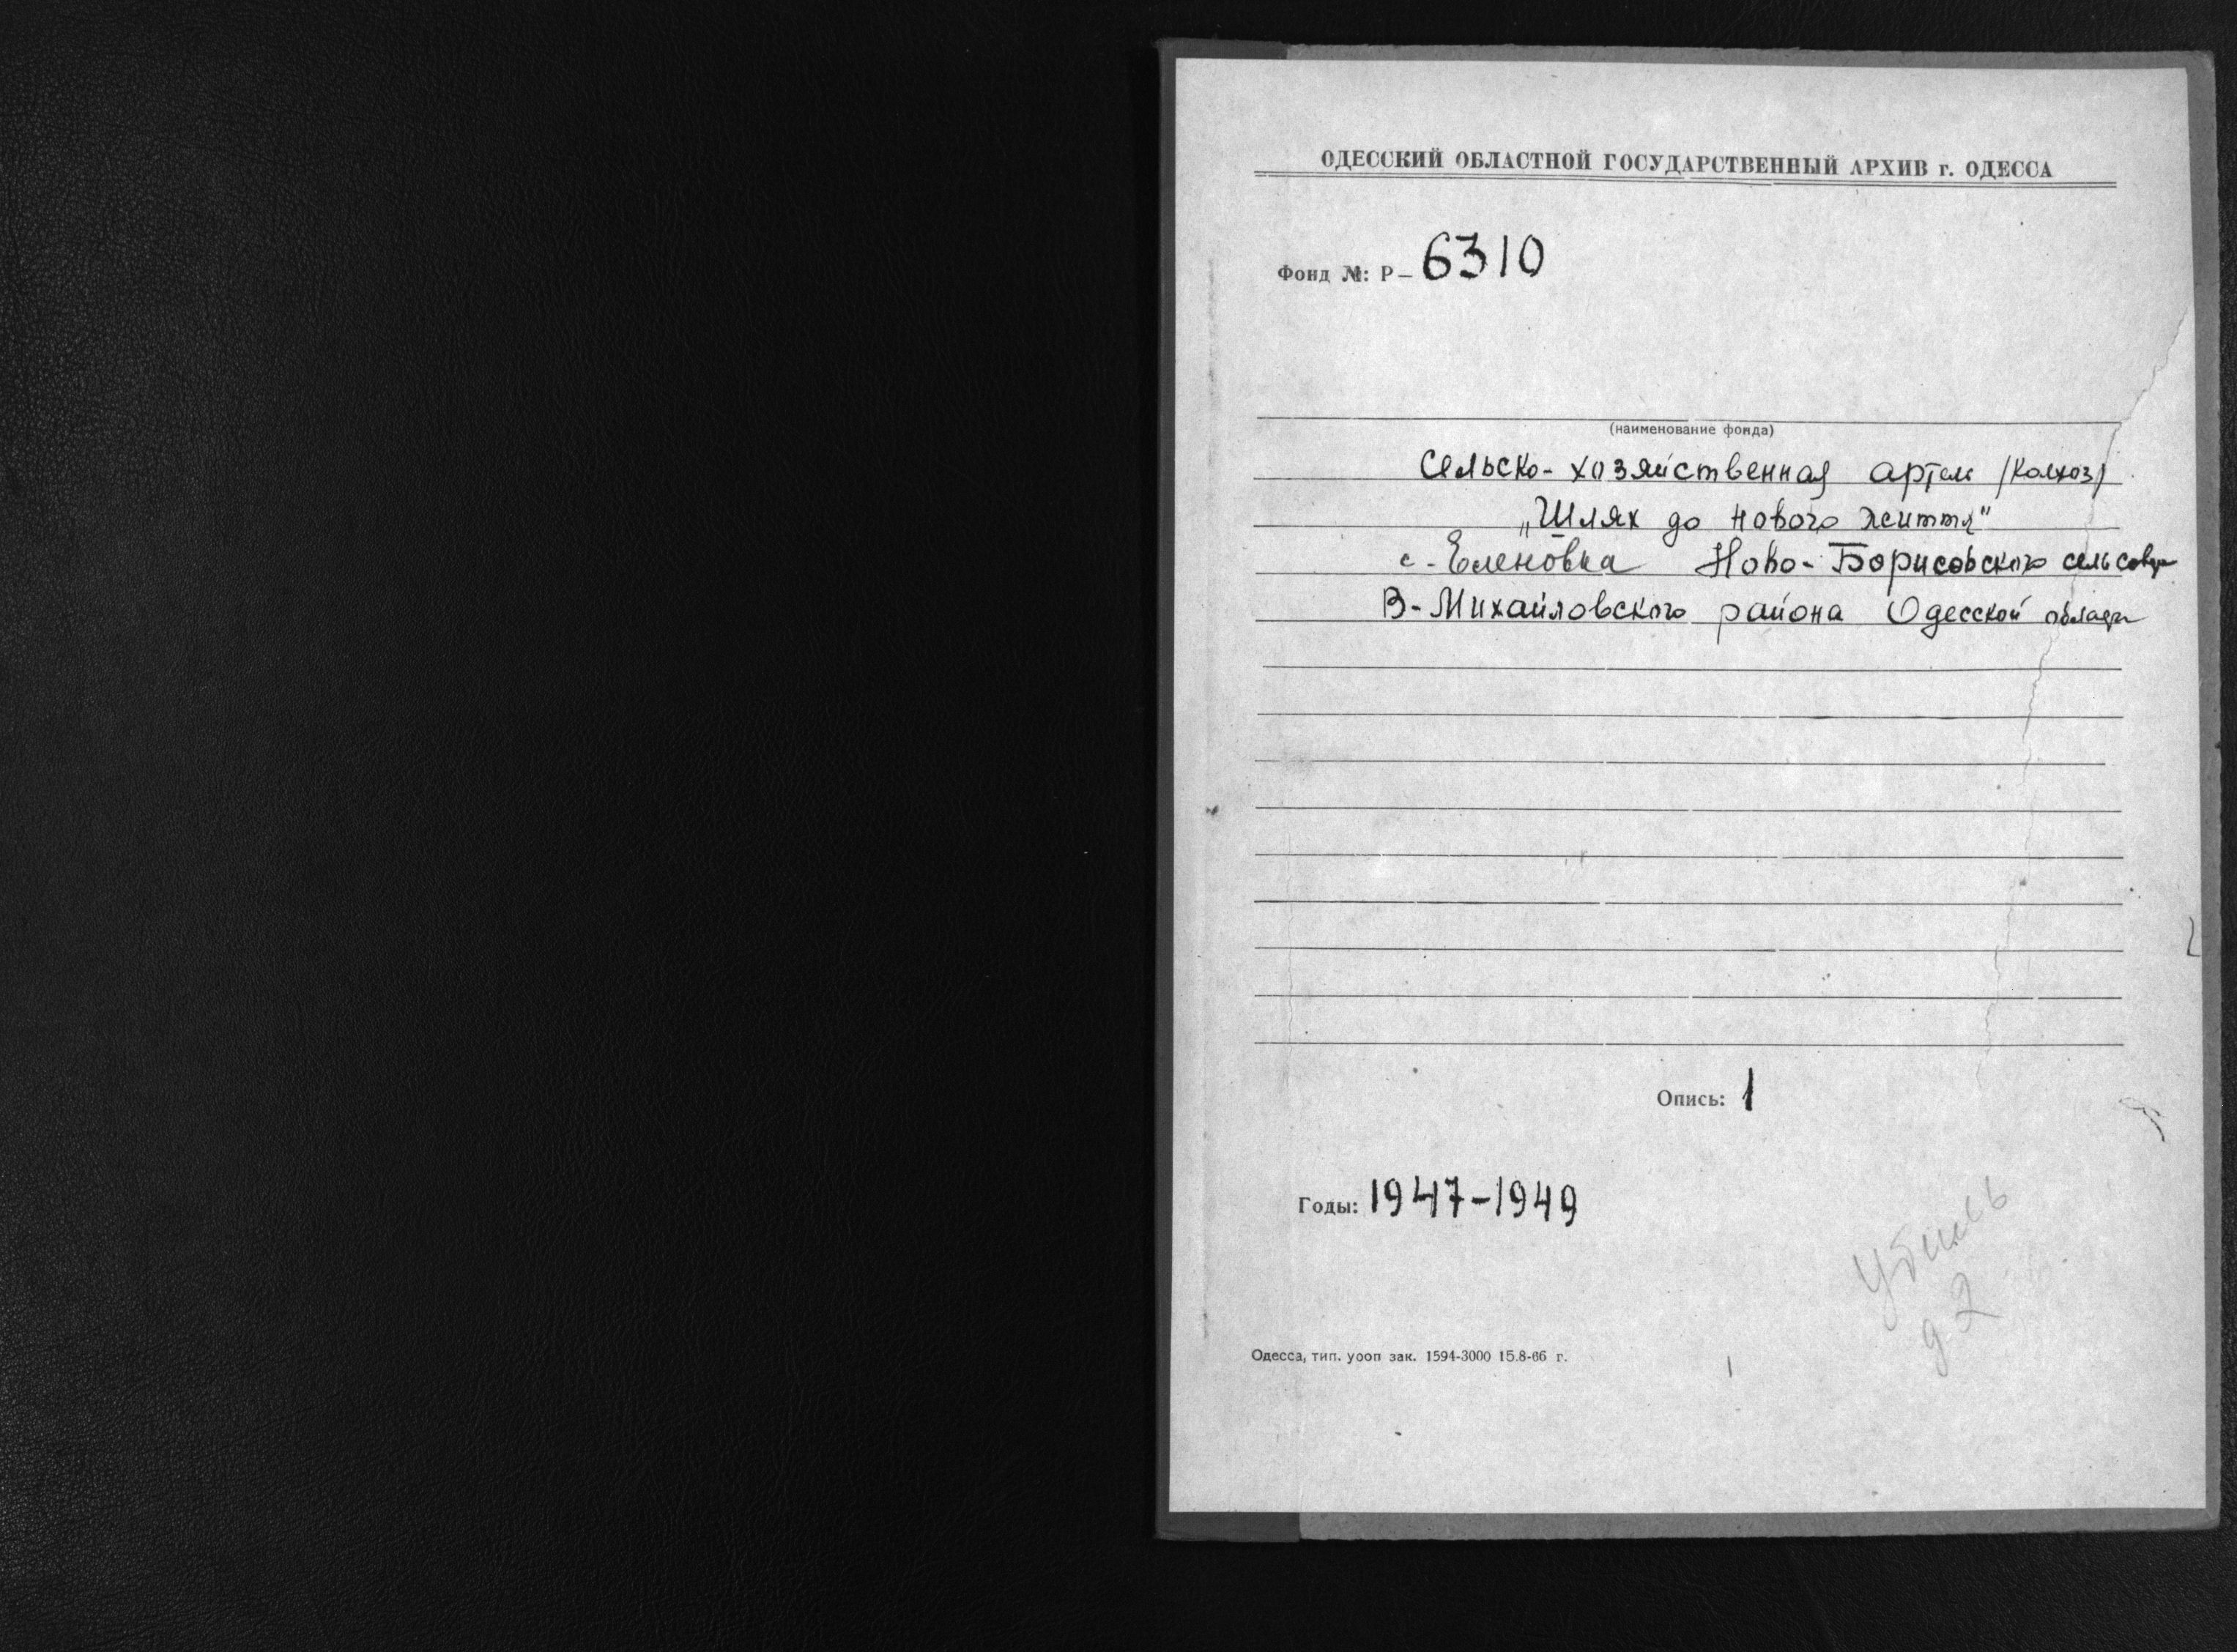 ОДЕССКИЙ ОБЛАСТНОЙ ГОСУДАРСТВЕННЫЙ АРХИВ г. ОДЕССА
Фонд №: Р- 6310
(наименование фонда)
Сельско-хозяйственная артель /колхоз/
„Шлях до нового життя"
с. Еленовка Ново-Борисовского
В-Михайловского района Одесской
Опись: 1
Годы: 1947-1949
2
Одесса, тип. уооп зак. 1594-3000 15.8-66 г.